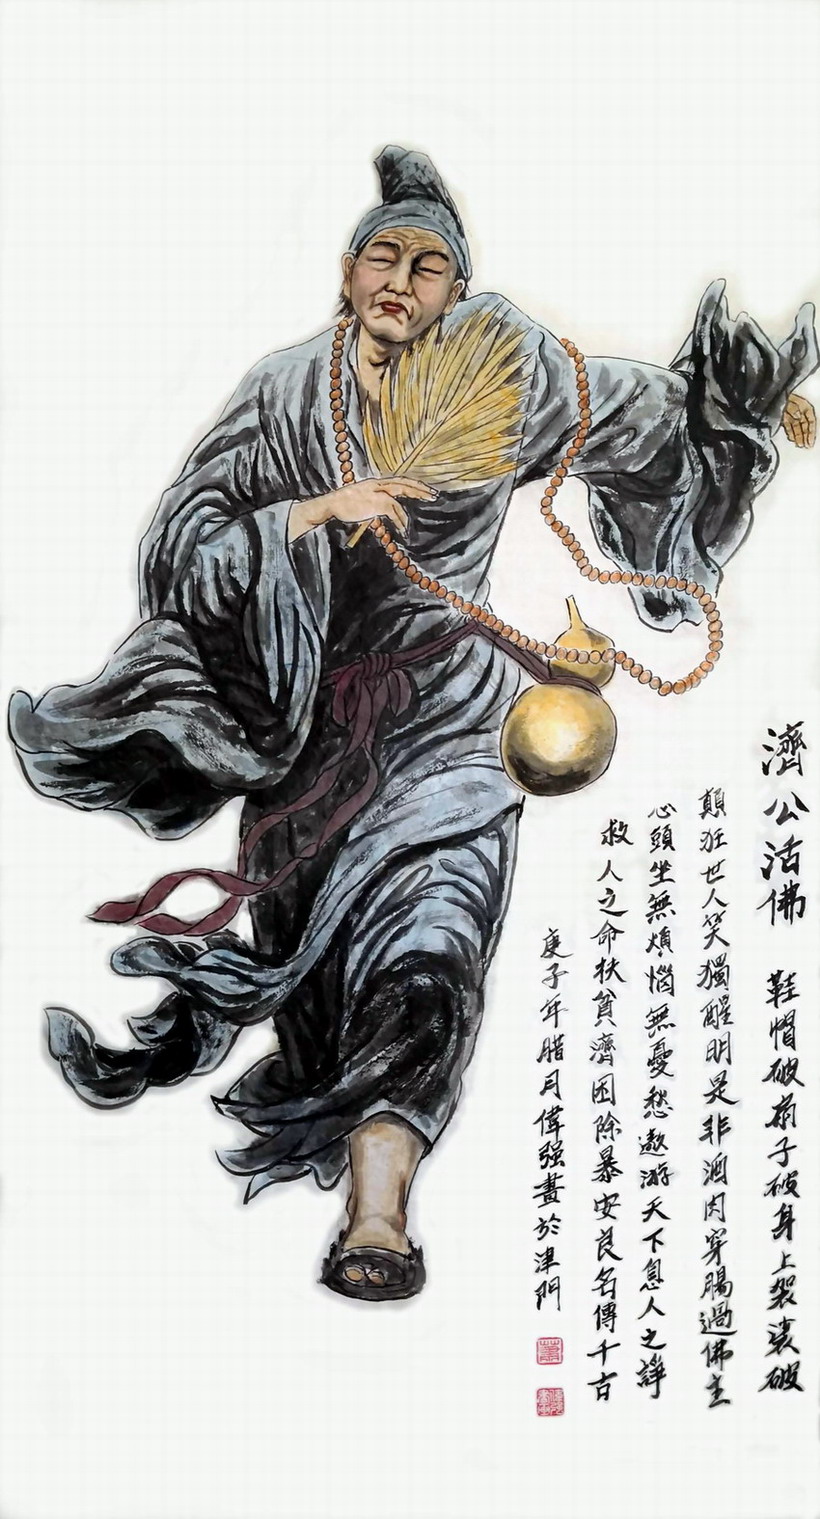 濟公活佛 鞋帽破扇子破身上袈裟破
顛狂世人笑獨醒明是非酒肉穿腸過佛主
心頭坐無煩惱無憂愁遨游天下息人之諍
救人之命扶貧濟困除暴安良名傳千古
庚子年腊月偉强畫於津門